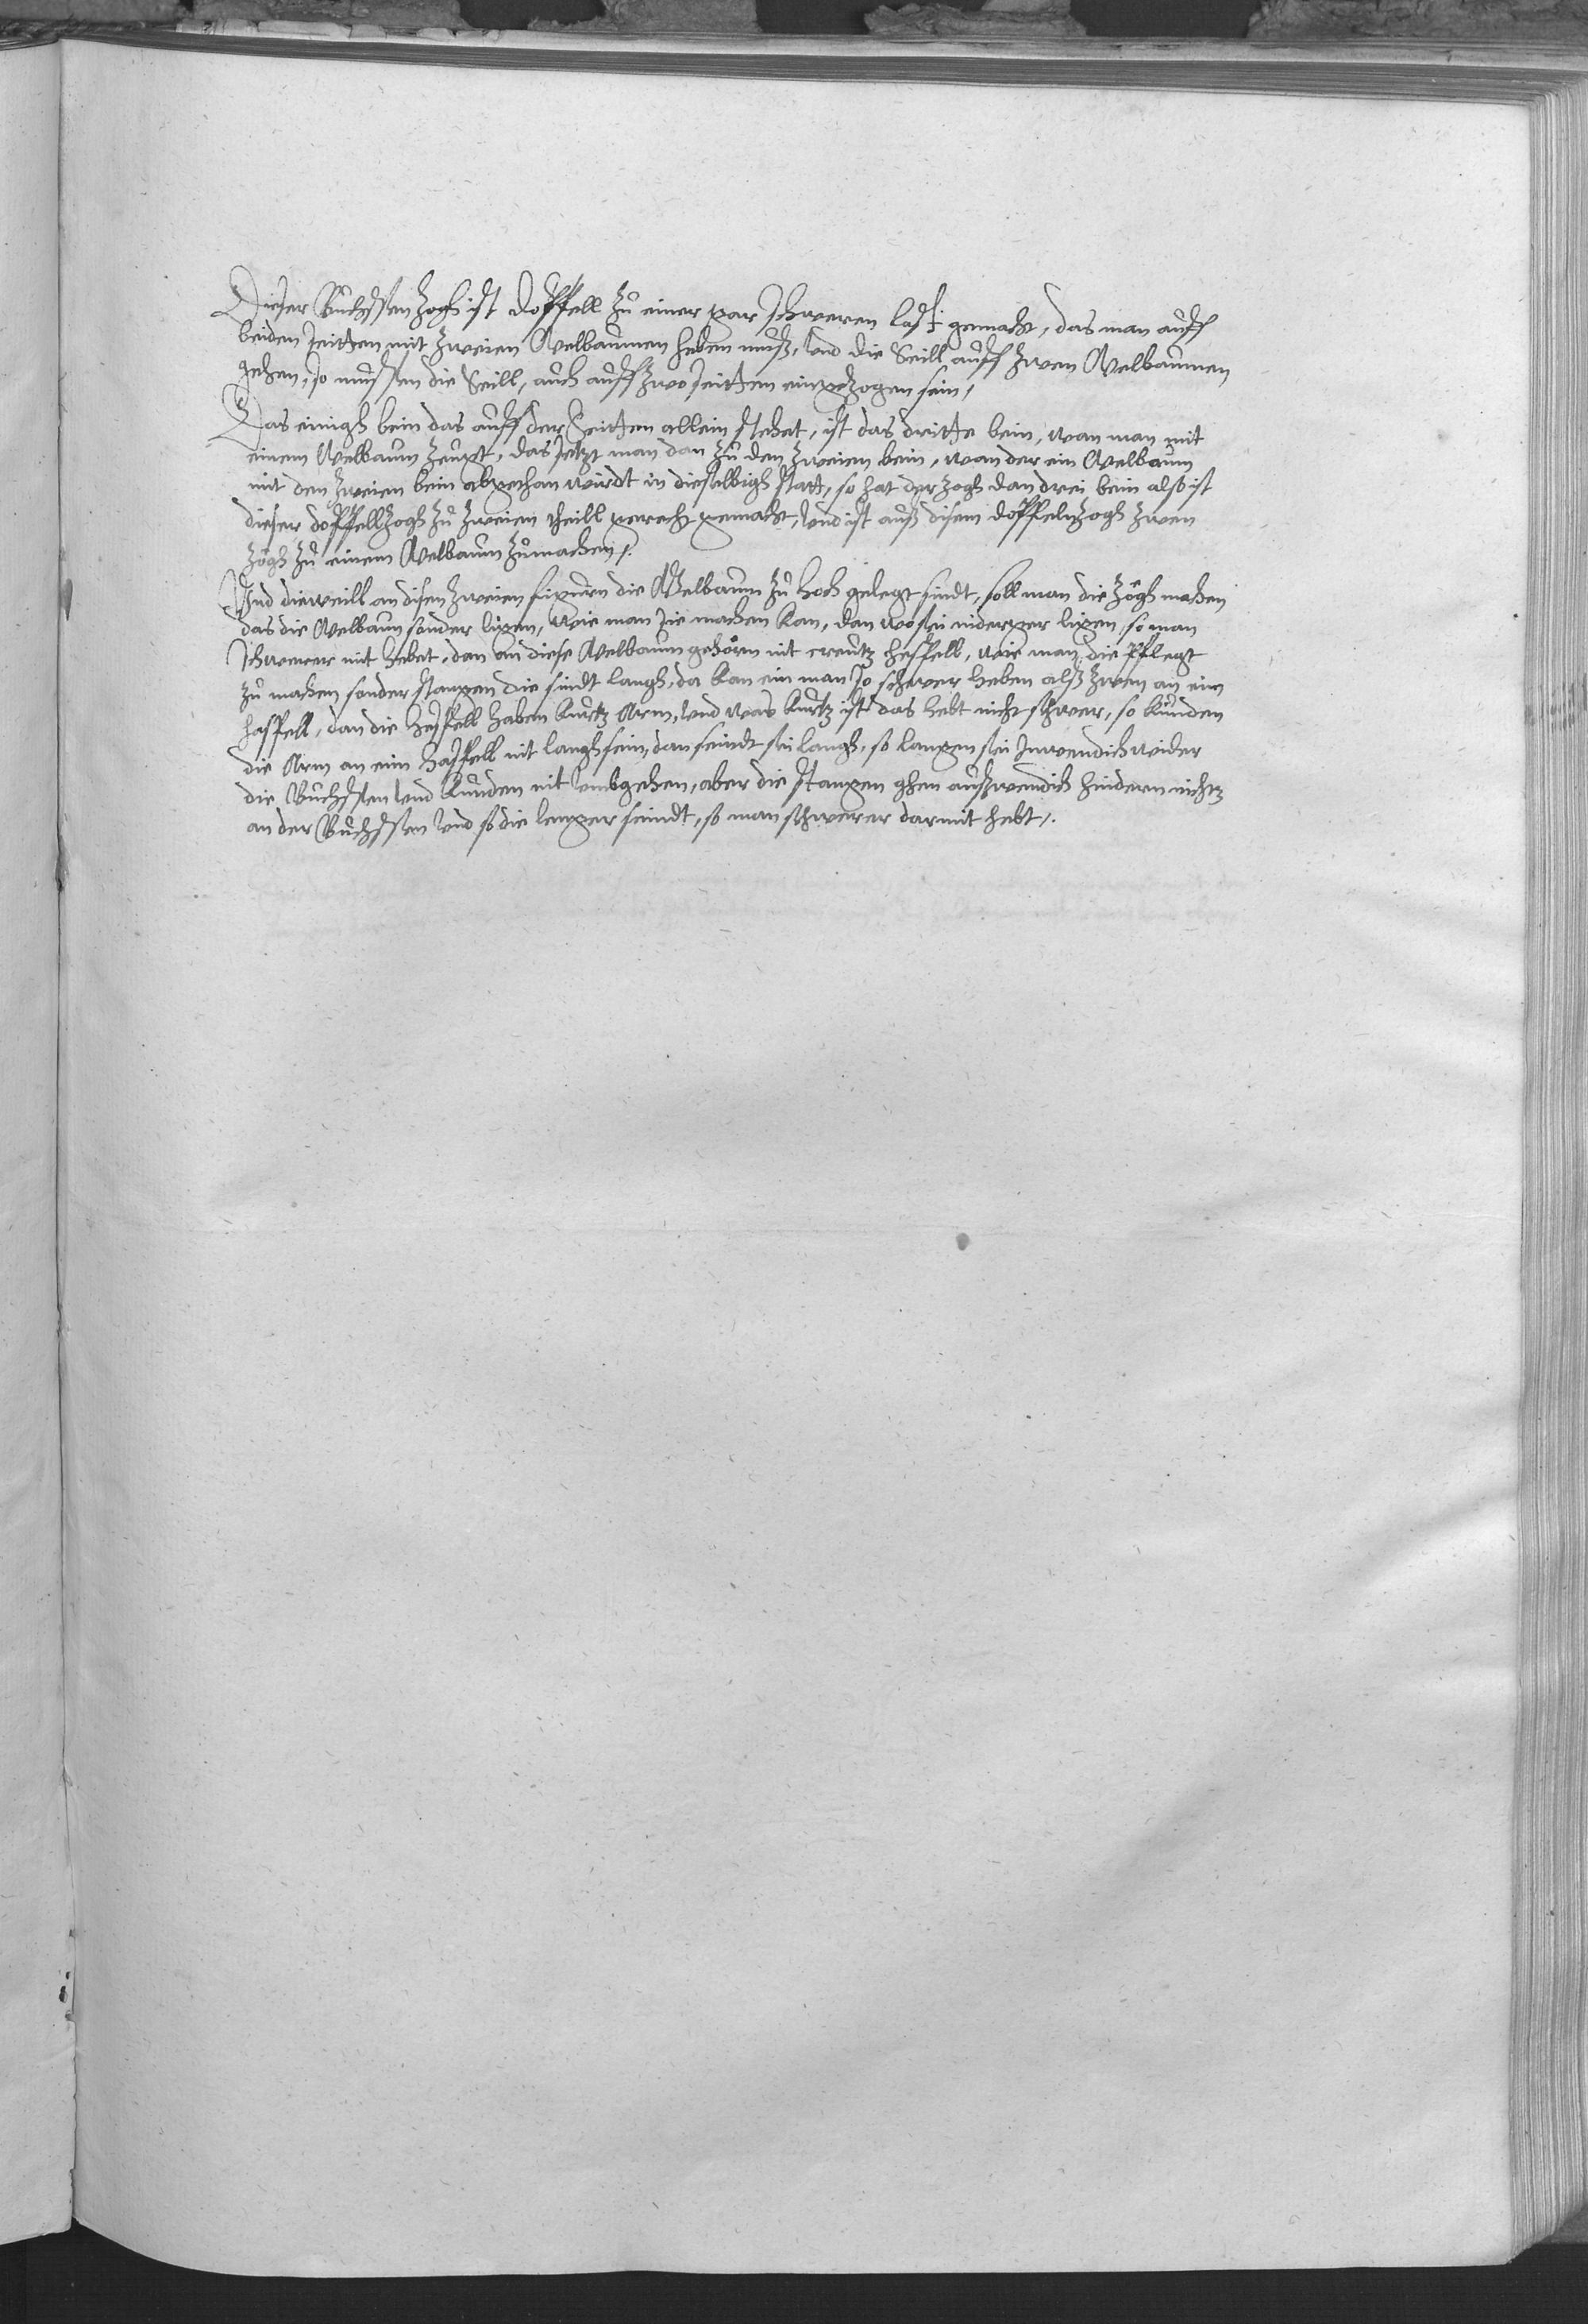 Dieser Buchssen Zogh ist doppell zu einer gar schweren last gemacht, das man auff
beiden seitten mit zweien Welbaumen heben muß, und die Seill auff zwen Welbaumen
gehen, so mussen die Seill, auch auff zwo seitten eingezogen sein,
Das einigh bein das auff der Seitten allein stehet, ist das dritte bein, wan man mit
einem Welbaum zeugt, das setzt man dan zu den zweien bein, wan der ein Welbaum
mit den zweien bein abgethan wirdt in dieselbigh statt, so hat der zogh dan drei bein also ist
dieser doppell Zogh zu zweien theill gerecht gemacht, und ist auß disem doppeln Zogh zwen
Zögh zu einem Welbaum zumachen,.
Und dieweill an disen zweien figurn die Welbaum zu hoch gelegt sindt, soll man die Zögh machen
das die Welbaum sonder ligen, wie man sie machen kan, dan wo sei niderger ligen, so man
schwerer mit hebet, dan an diese Welbaum gehörn nit creutz hespell, wie man die pflegt
zu machen sonder stangen die sindt langh, da kan ein man so schwer heben alß zwen an eim
haspell, dan die hespell haben kurtz Arm, und was kurtz ist das hebt nicht schwer, so kunden
die Arm an eim haspell nit langh sein, dan seindt sei langh, so langen sei Inwendich wider
die Buchssen und kunden nit umbgehen, aber die stangen ghen außwendich hindern nichtz
an der Buchssen und so die lenger seindt, so man schwerer darmit hebt,.